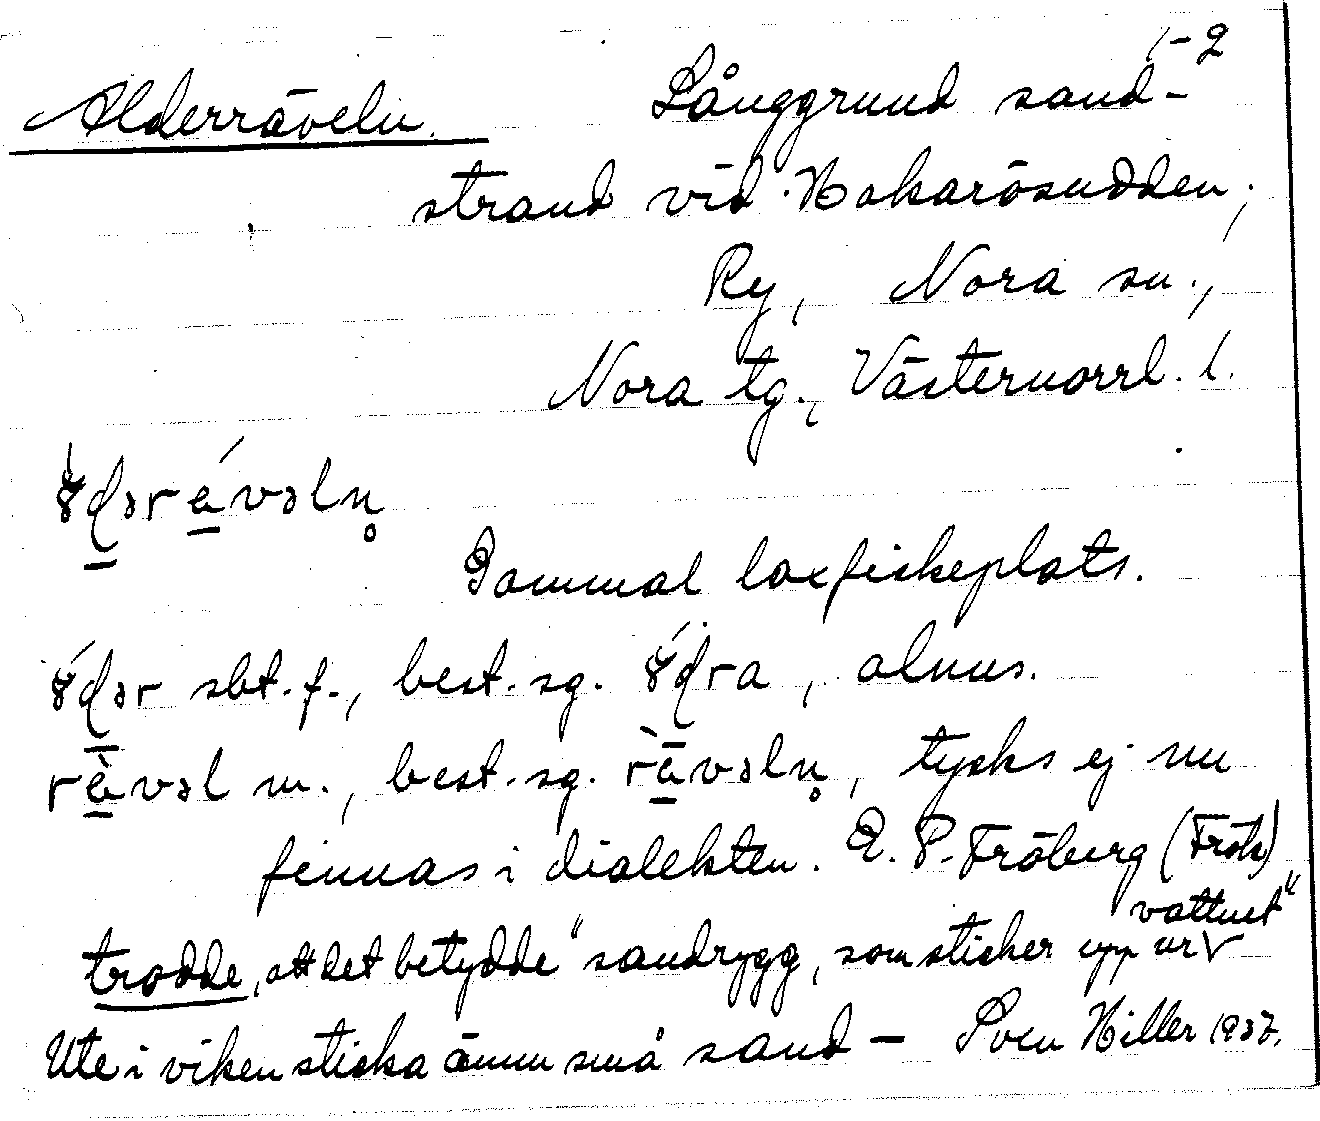 1-2
Alderräveln. Långgrund sand-
strand vid Hakarösudden,
Ry, Nora sn.,
Nora tg., Västernorrl. l.
Gammal laxfiskeplats.
sbt. f., best. sg. , alnus.
m., best. sg. , tycks ej nu
finnas i dialekten. E. P. Fröberg (Frök)
trodde, att det betydde "sandrygg, som sticker upp ur vattnet"
Ute i viken sticka ännu små sand – Sven Hiller 1937.